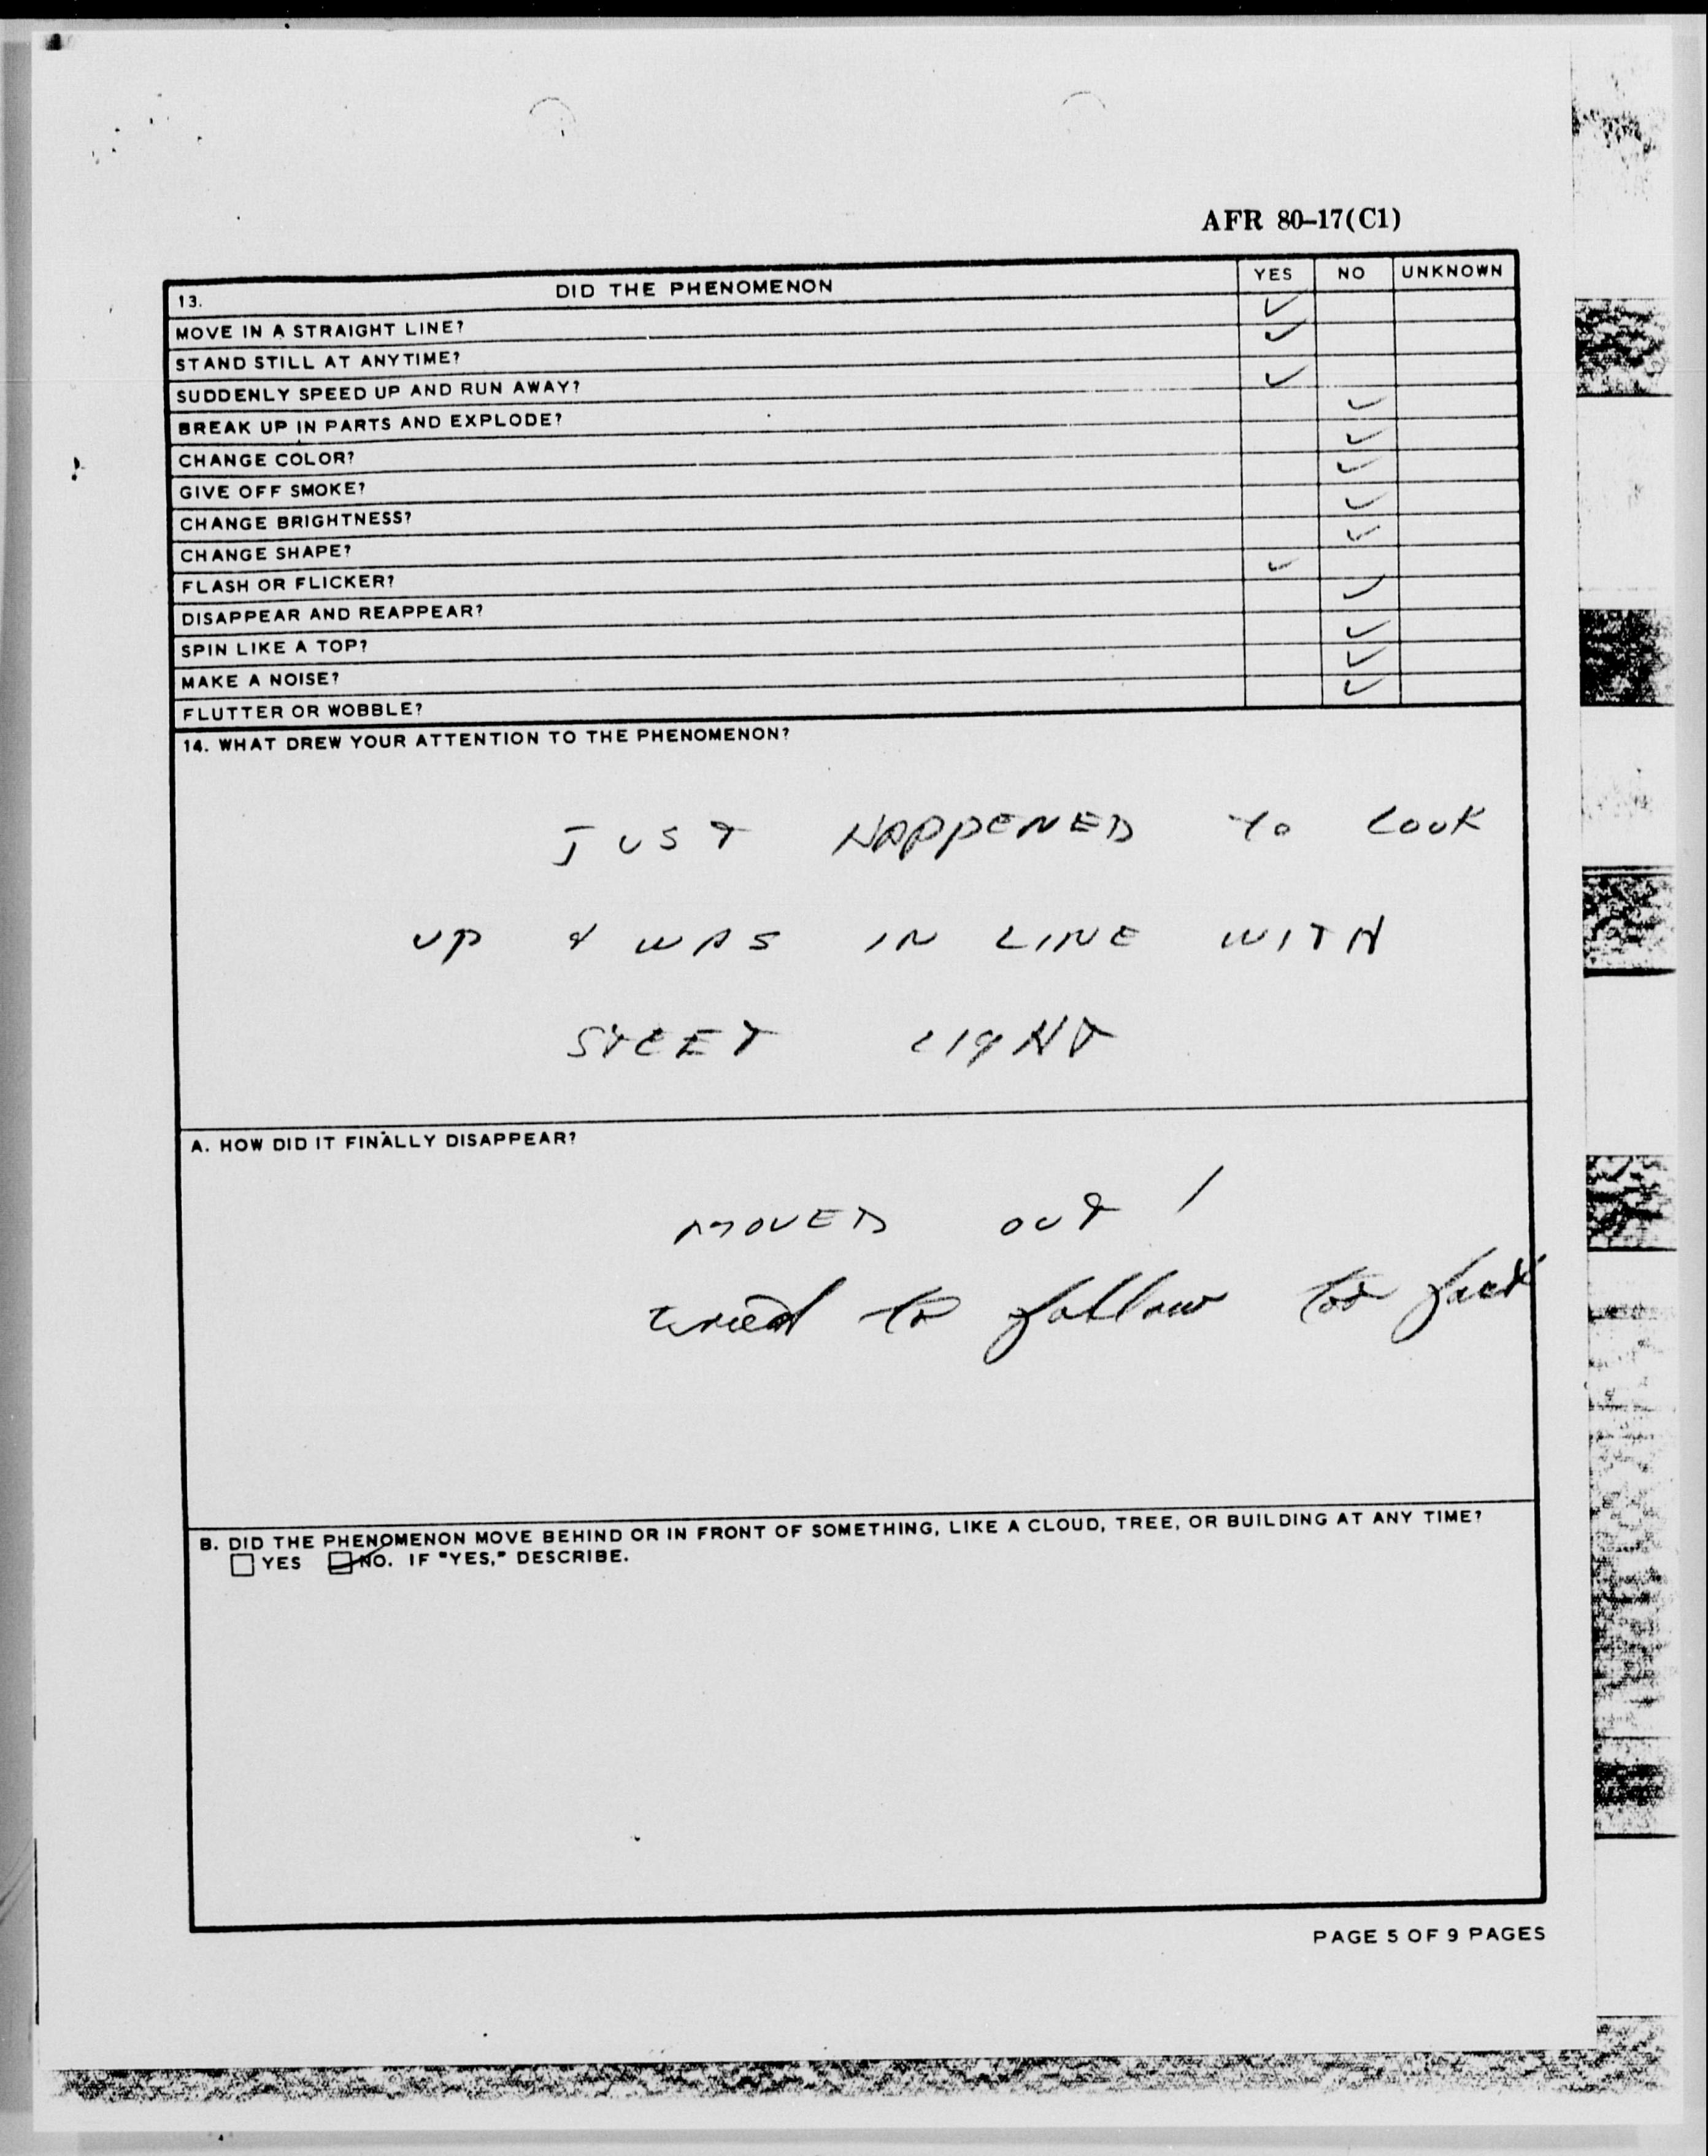 AFR 80-17(C1)
13. DID THE PHENOMENON YES NO UNKNOWN
MOVE IN A STRAIGHT LINE? ✓
STAND STILL AT ANYTIME? ✓
SUDDENLY SPEED UP AND RUN AWAY? ✓
BREAK UP IN PARTS AND EXPLODE? ✓
CHANGE COLOR? ✓
GIVE OFF SMOKE? ✓
CHANGE BRIGHTNESS? ✓
CHANGE SHAPE? ✓
FLASH OR FLICKER? ✓
DISAPPEAR AND REAPPEAR? ✓
SPIN LIKE A TOP? ✓
MAKE A NOISE? ✓
FLUTTER OR WOBBLE? ✓
14. WHAT DREW YOUR ATTENTION TO THE PHENOMENON?
JUST HAPPENED to LOOK
UP & WAS IN LINE WITH
STEET LIGHT
A. HOW DID IT FINALLY DISAPPEAR?
MOVED OUT !
tried to follow too fast
B. DID THE PHENOMENON MOVE BEHIND OR IN FRONT OF SOMETHING, LIKE A CLOUD, TREE, OR BUILDING AT ANY TIME?
YES NO. IF "YES," DESCRIBE.
PAGE 5 OF 9 PAGES